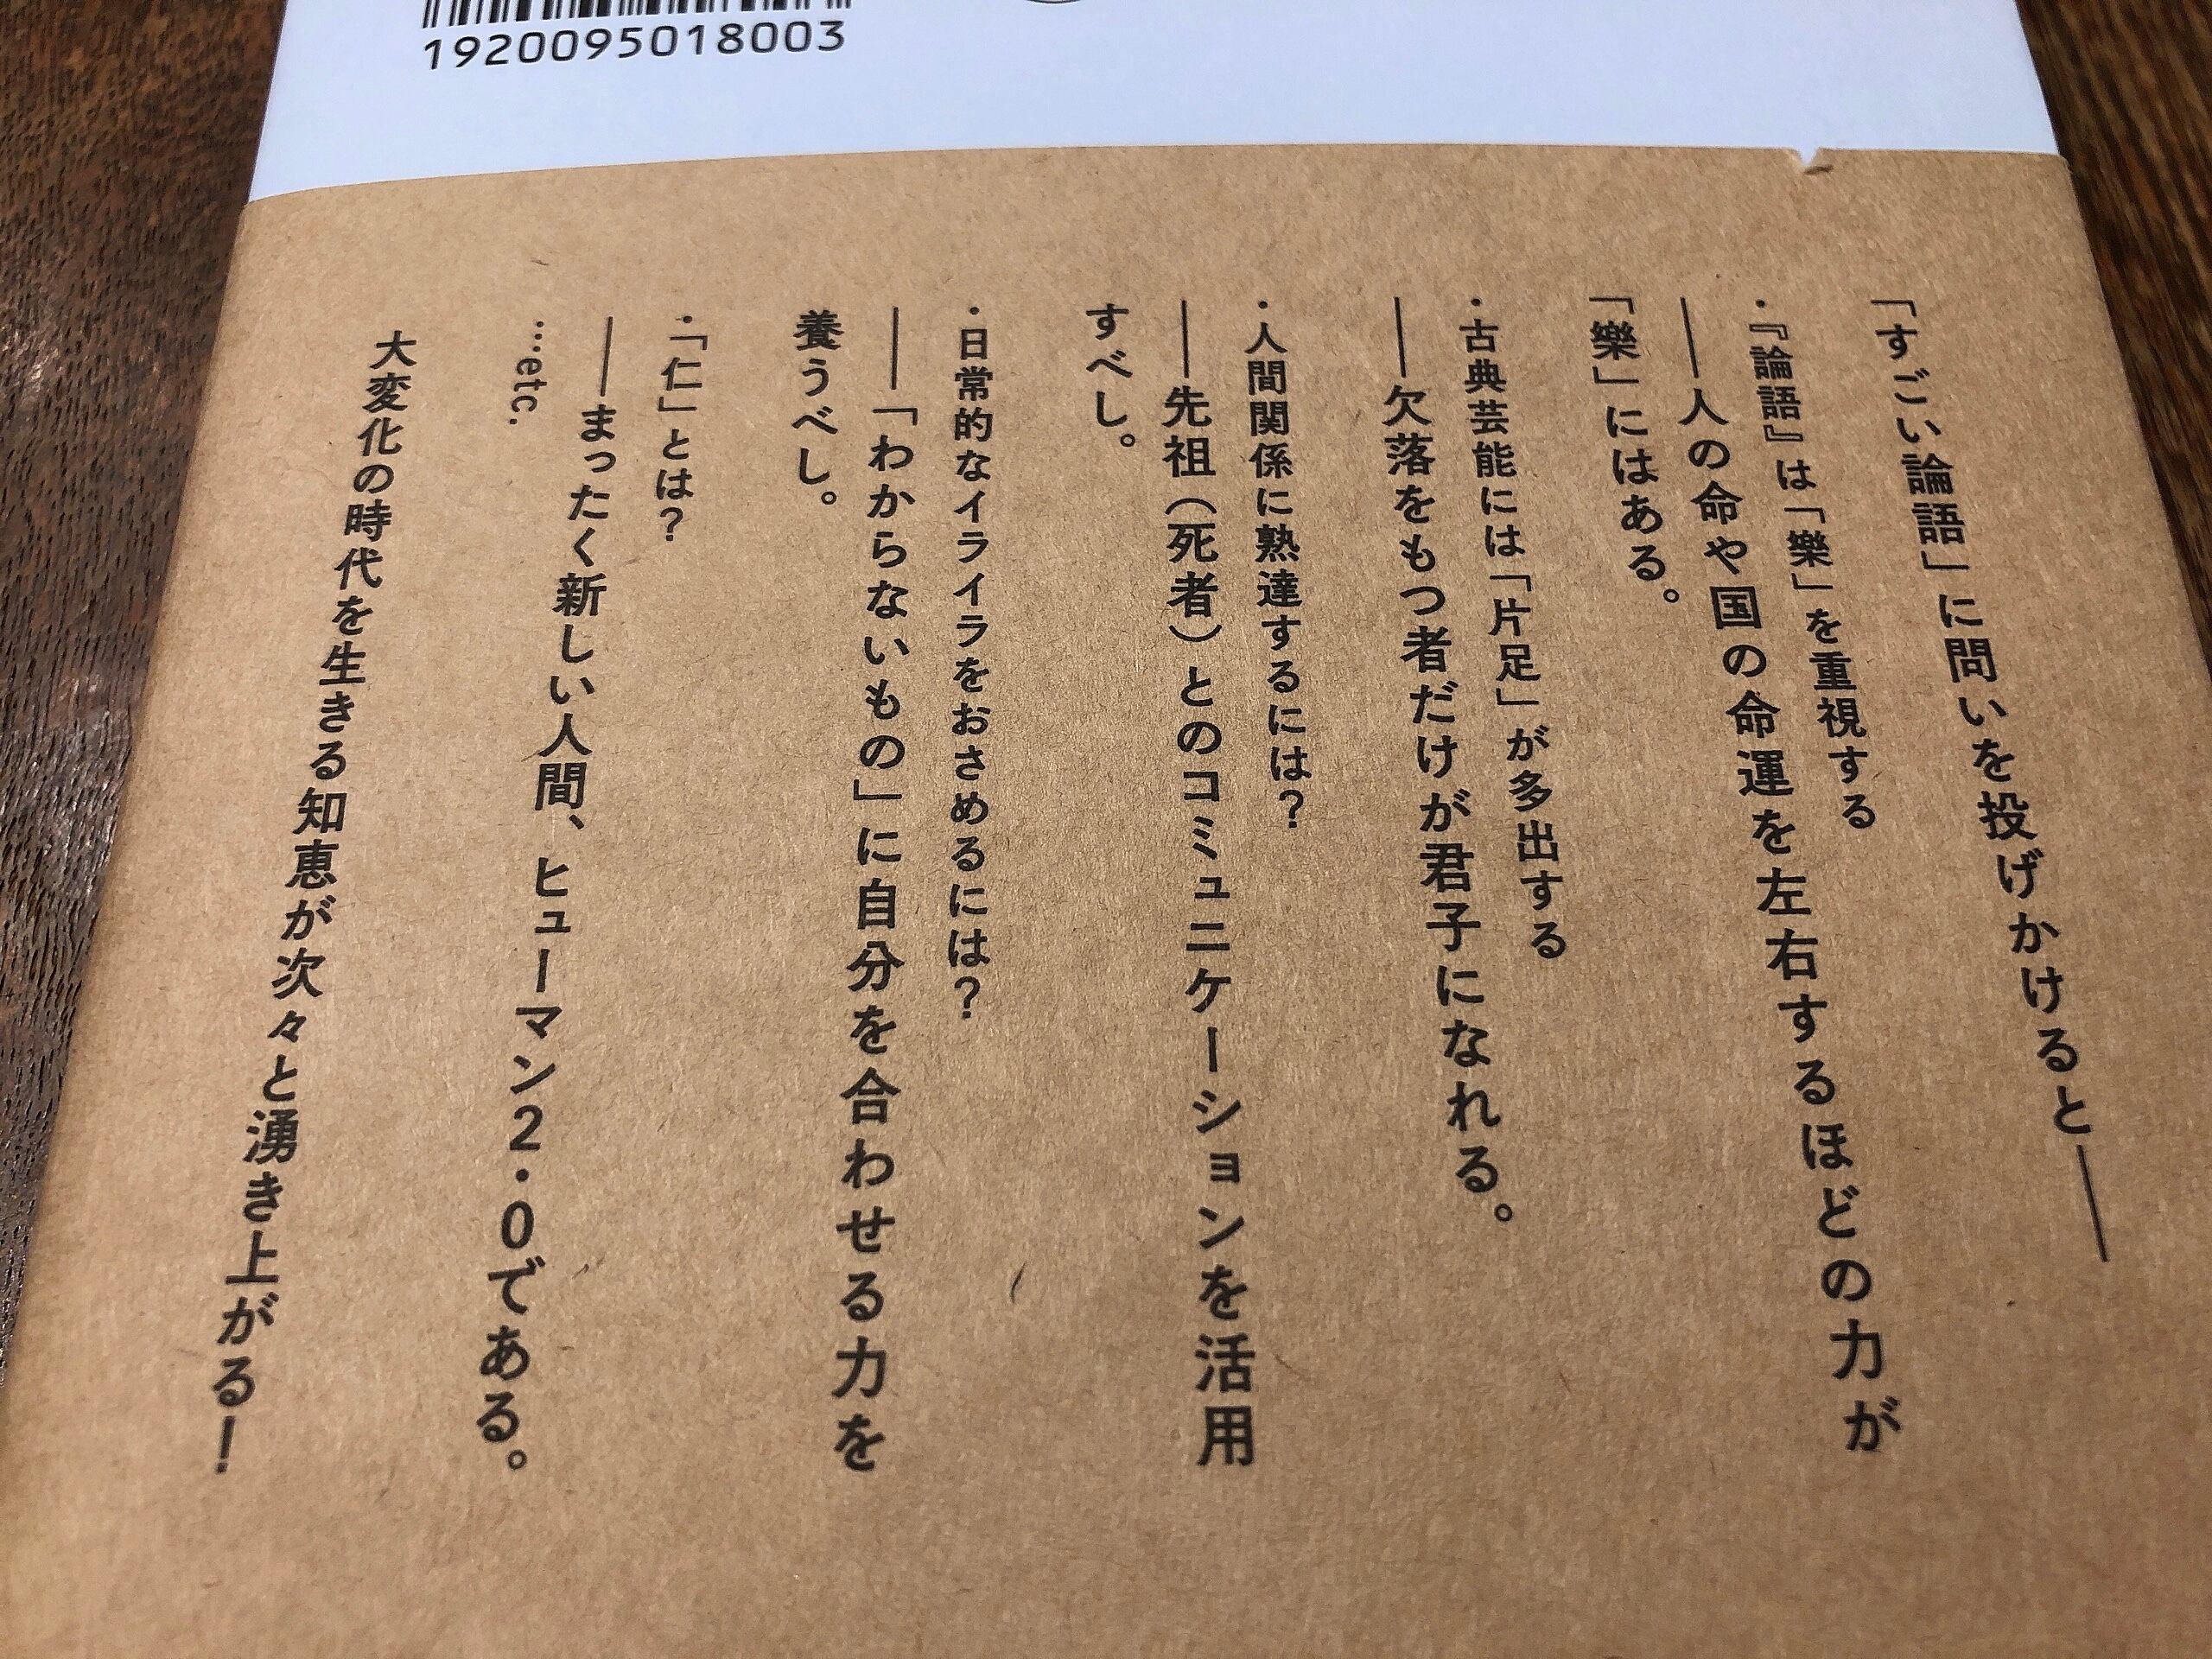 1920095018003
「すごい論語」に問いを投げかけると――
・『論語』は「樂」を重視する
――人の命や国の命運を左右するほどの力が
「樂」にはある。
・古典芸能には「片足」が多出する
――欠落をもつ者だけが君子になれる。
・人間関係に熟達するには？
――先祖（死者）とのコミュニケーションを活用
すべし。
・日常的なイライラをおさめるには？
――「わからないもの」に自分を合わせる力を
養うべし。
・「仁」とは？
――まったく新しい人間、ヒューマン2・0である。
…etc.
大変化の時代を生きる知恵が次々と湧き上がる！